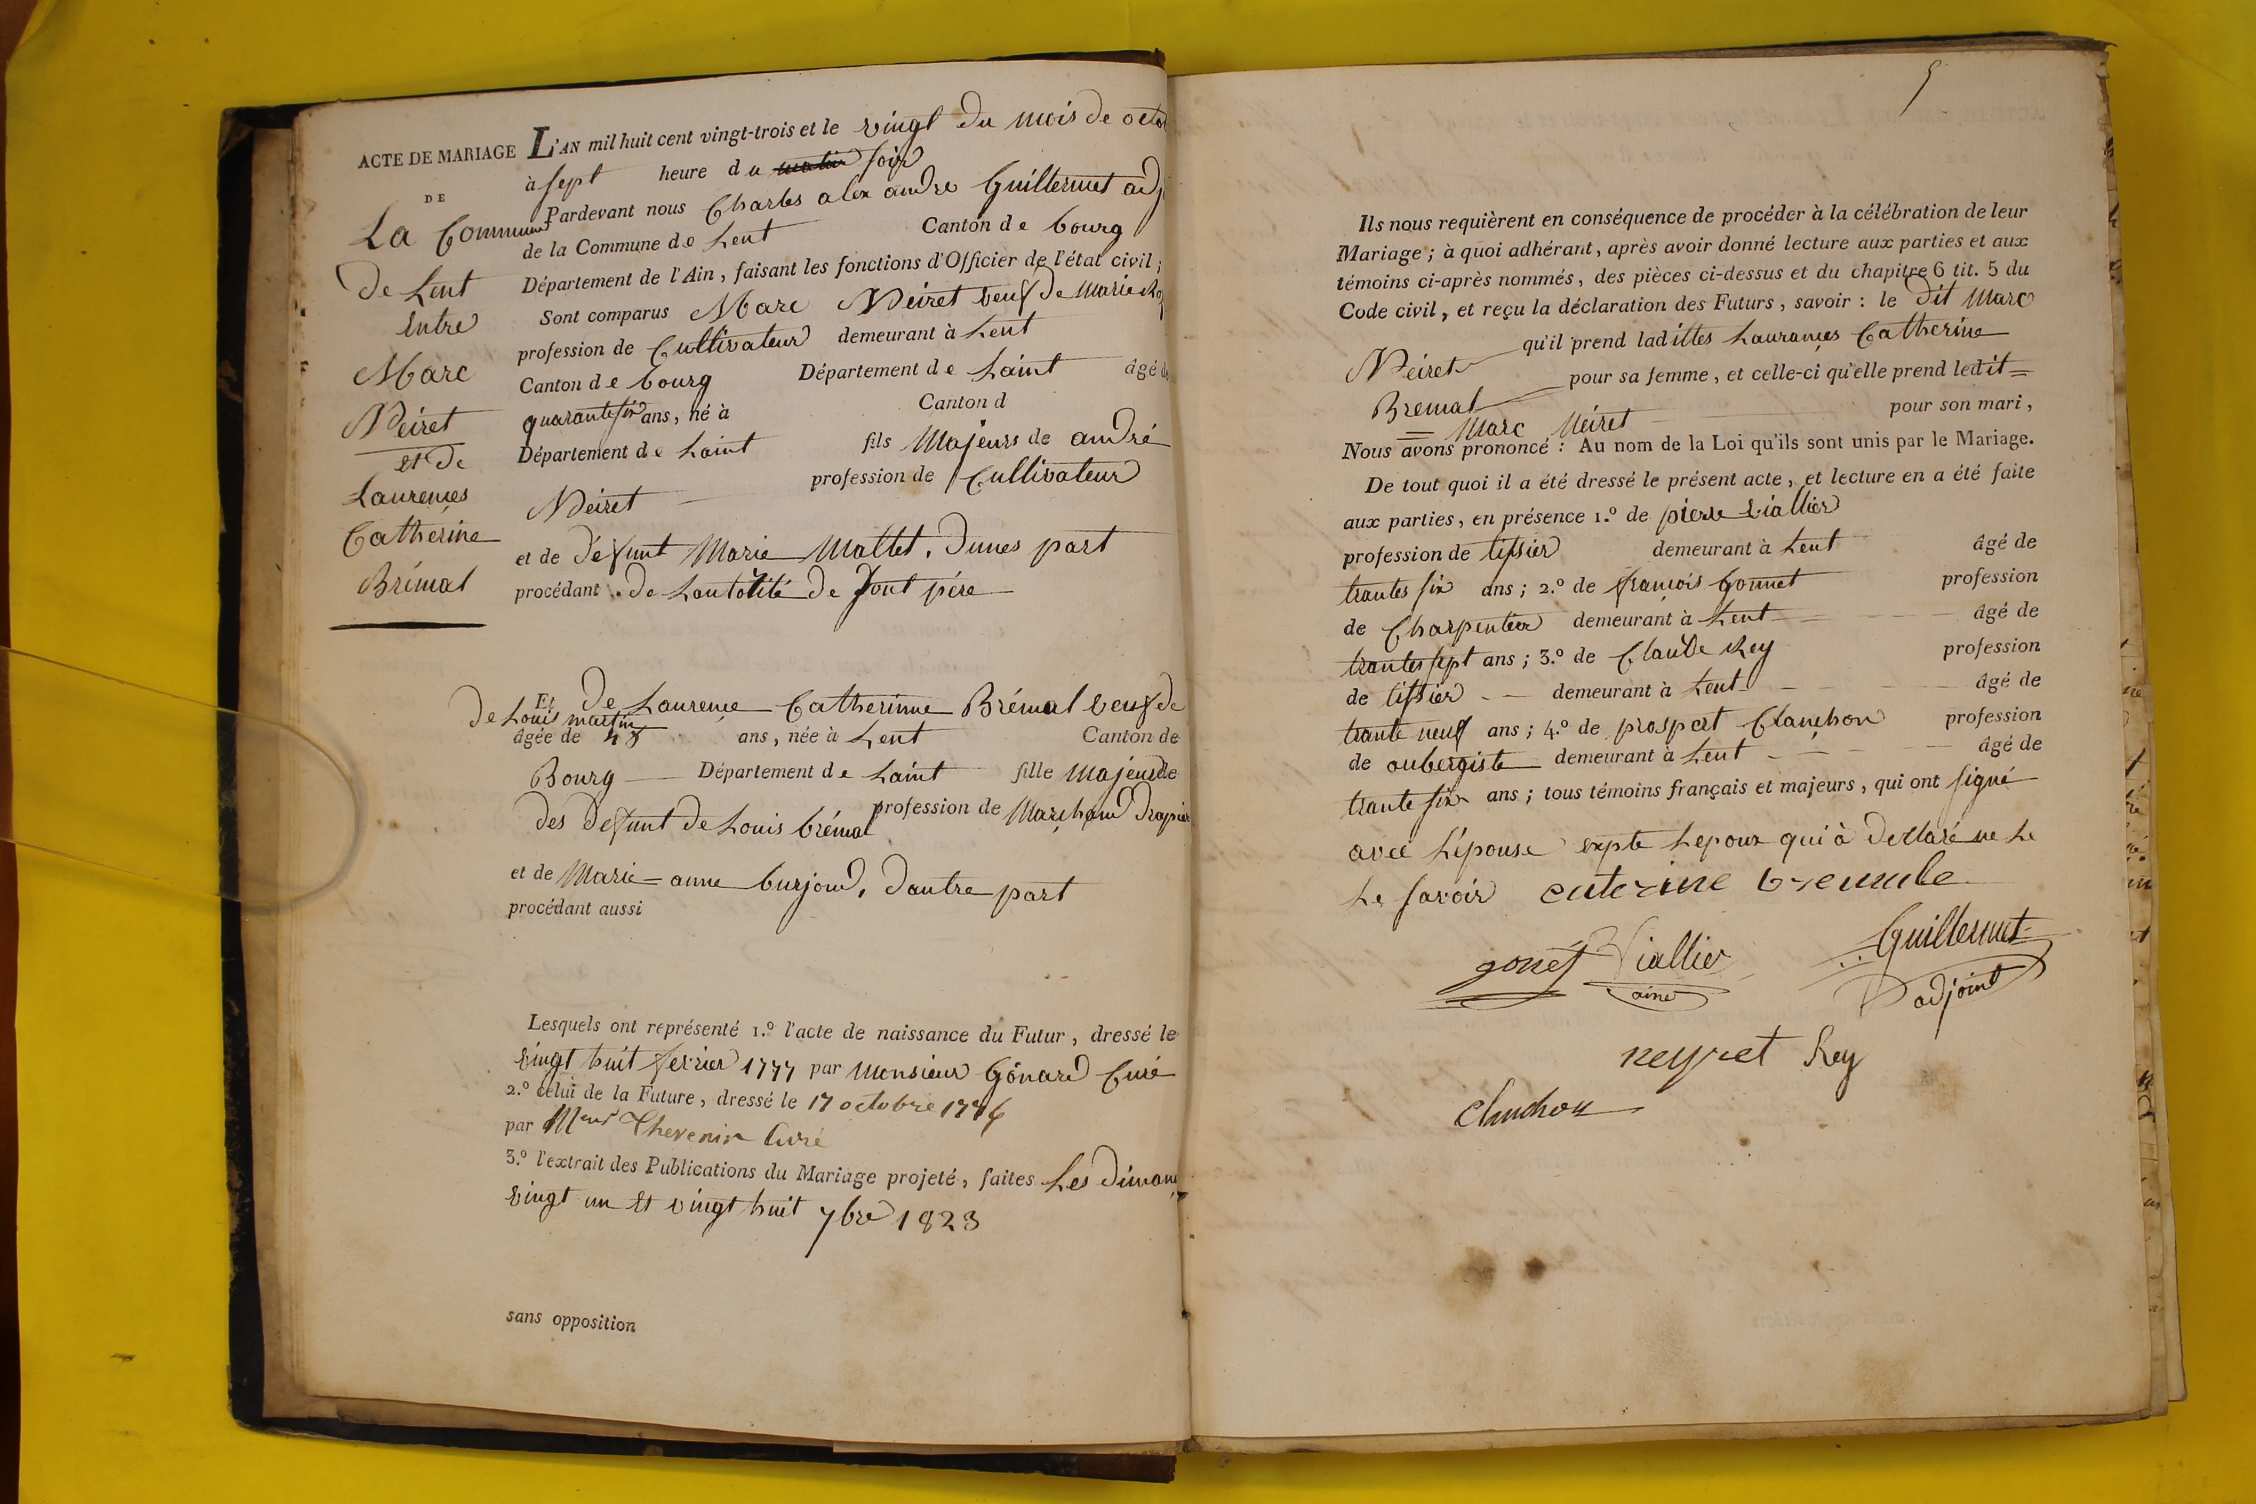 ACTE DE MARIAGE
DE
La Commune
de Lent
Entre
Marc
Neiret
et de
Laurences
Catherine
Brémal
L'AN mil huit cent vingt-trois et le vingt du mois de octob
à sept heure du matin soir
Pardevant nous Charles alexandre Guillermet adj
de la Commune de Lent Canton de bourg
Département de l'Ain, faisant les fonctions d'Officier de l'état civil;
Sont comparus Marc Neiret veuf de Marie
profession de Cultivateur demeurant à Lent
Canton de bourg Département de Laint âgé de
quarante six ans, né à Canton d
Département de Laint fils Majeurs de andré
Neiret profession de Cultivateur
et de défunt Marie Mallet, dunes part
procédant de Lautorité de Sont père
Et de Laurence Catherinne Brémal veuf de
de Louis martin
âgée de ans, née à Lent Canton de
Bourg Département de Laint fille Majeur de
des defunt de Louis brémal profession de Marchand drapier
et de Marie-anne burjoud, dautre part
procédant aussi
Lesquels ont représenté 1.º l'acte de naissance du Futur, dressé le
vingt huit fevrier 1777 par Monsieur Gonard Curé
2.º celui de la Future, dressé le 17 octobre 1776
par Meur Thevenin Curé
3.º l'extrait des Publications du Mariage projeté, faites Les diman
vingt un Et vingt huit 7bre 1823
sans opposition
5
Ils nous requièrent en conséquence de procéder à la célébration de leur
Mariage; à quoi adhérant, après avoir donné lecture aux parties et aux
témoins ci-après nommés, des pièces ci-dessus et du chapitre 6 tit. 5 du
Code civil, et reçu la déclaration des Futurs, savoir: le dit Marc
Neiret qu'il prend ladittes Laurances Catherine
Bremal pour sa femme, et celle-ci qu'elle prend ledit=
= Marc Neiret pour son mari,
Nous avons prononcé: Au nom de la Loi qu'ils sont unis par le Mariage.
De tout quoi il a été dressé le présent acte, et lecture en a été faite
aux parties, en présence 1.º de pierre Viallier
profession de tissier demeurant à Lent âgé de
trantes six ans; 2.º de françois Gonnet profession
de Charpentier demeurant à Lent âgé de
trantes sept ans; 3.º de Claude Rey profession
de tissier demeurant à Lent âgé de
trante neuf ans; 4.º de prospert Clanchon profession
de aubergiste demeurant à Lent âgé de
trante six ans; tous témoins français et majeurs, qui ont signé
avec Lépouse expte Lepoux qui à declaré ne Le
Le savoir caterine bremale
gonet Viallier Guillermet
ainé adjoint
neyret Rey
Clanchon